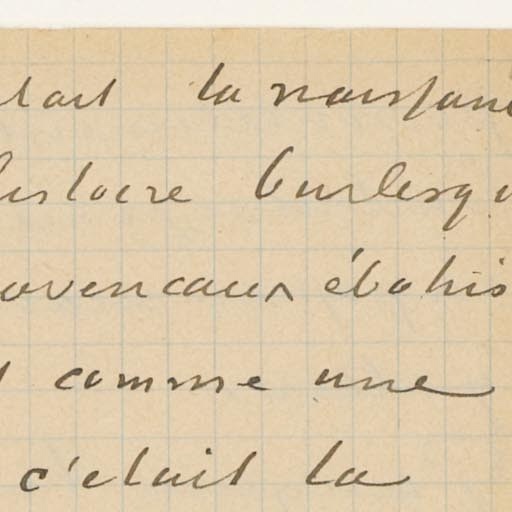 était la naissanc
histoire burlesqu
ovencaux ébahis
comme une
c'était la